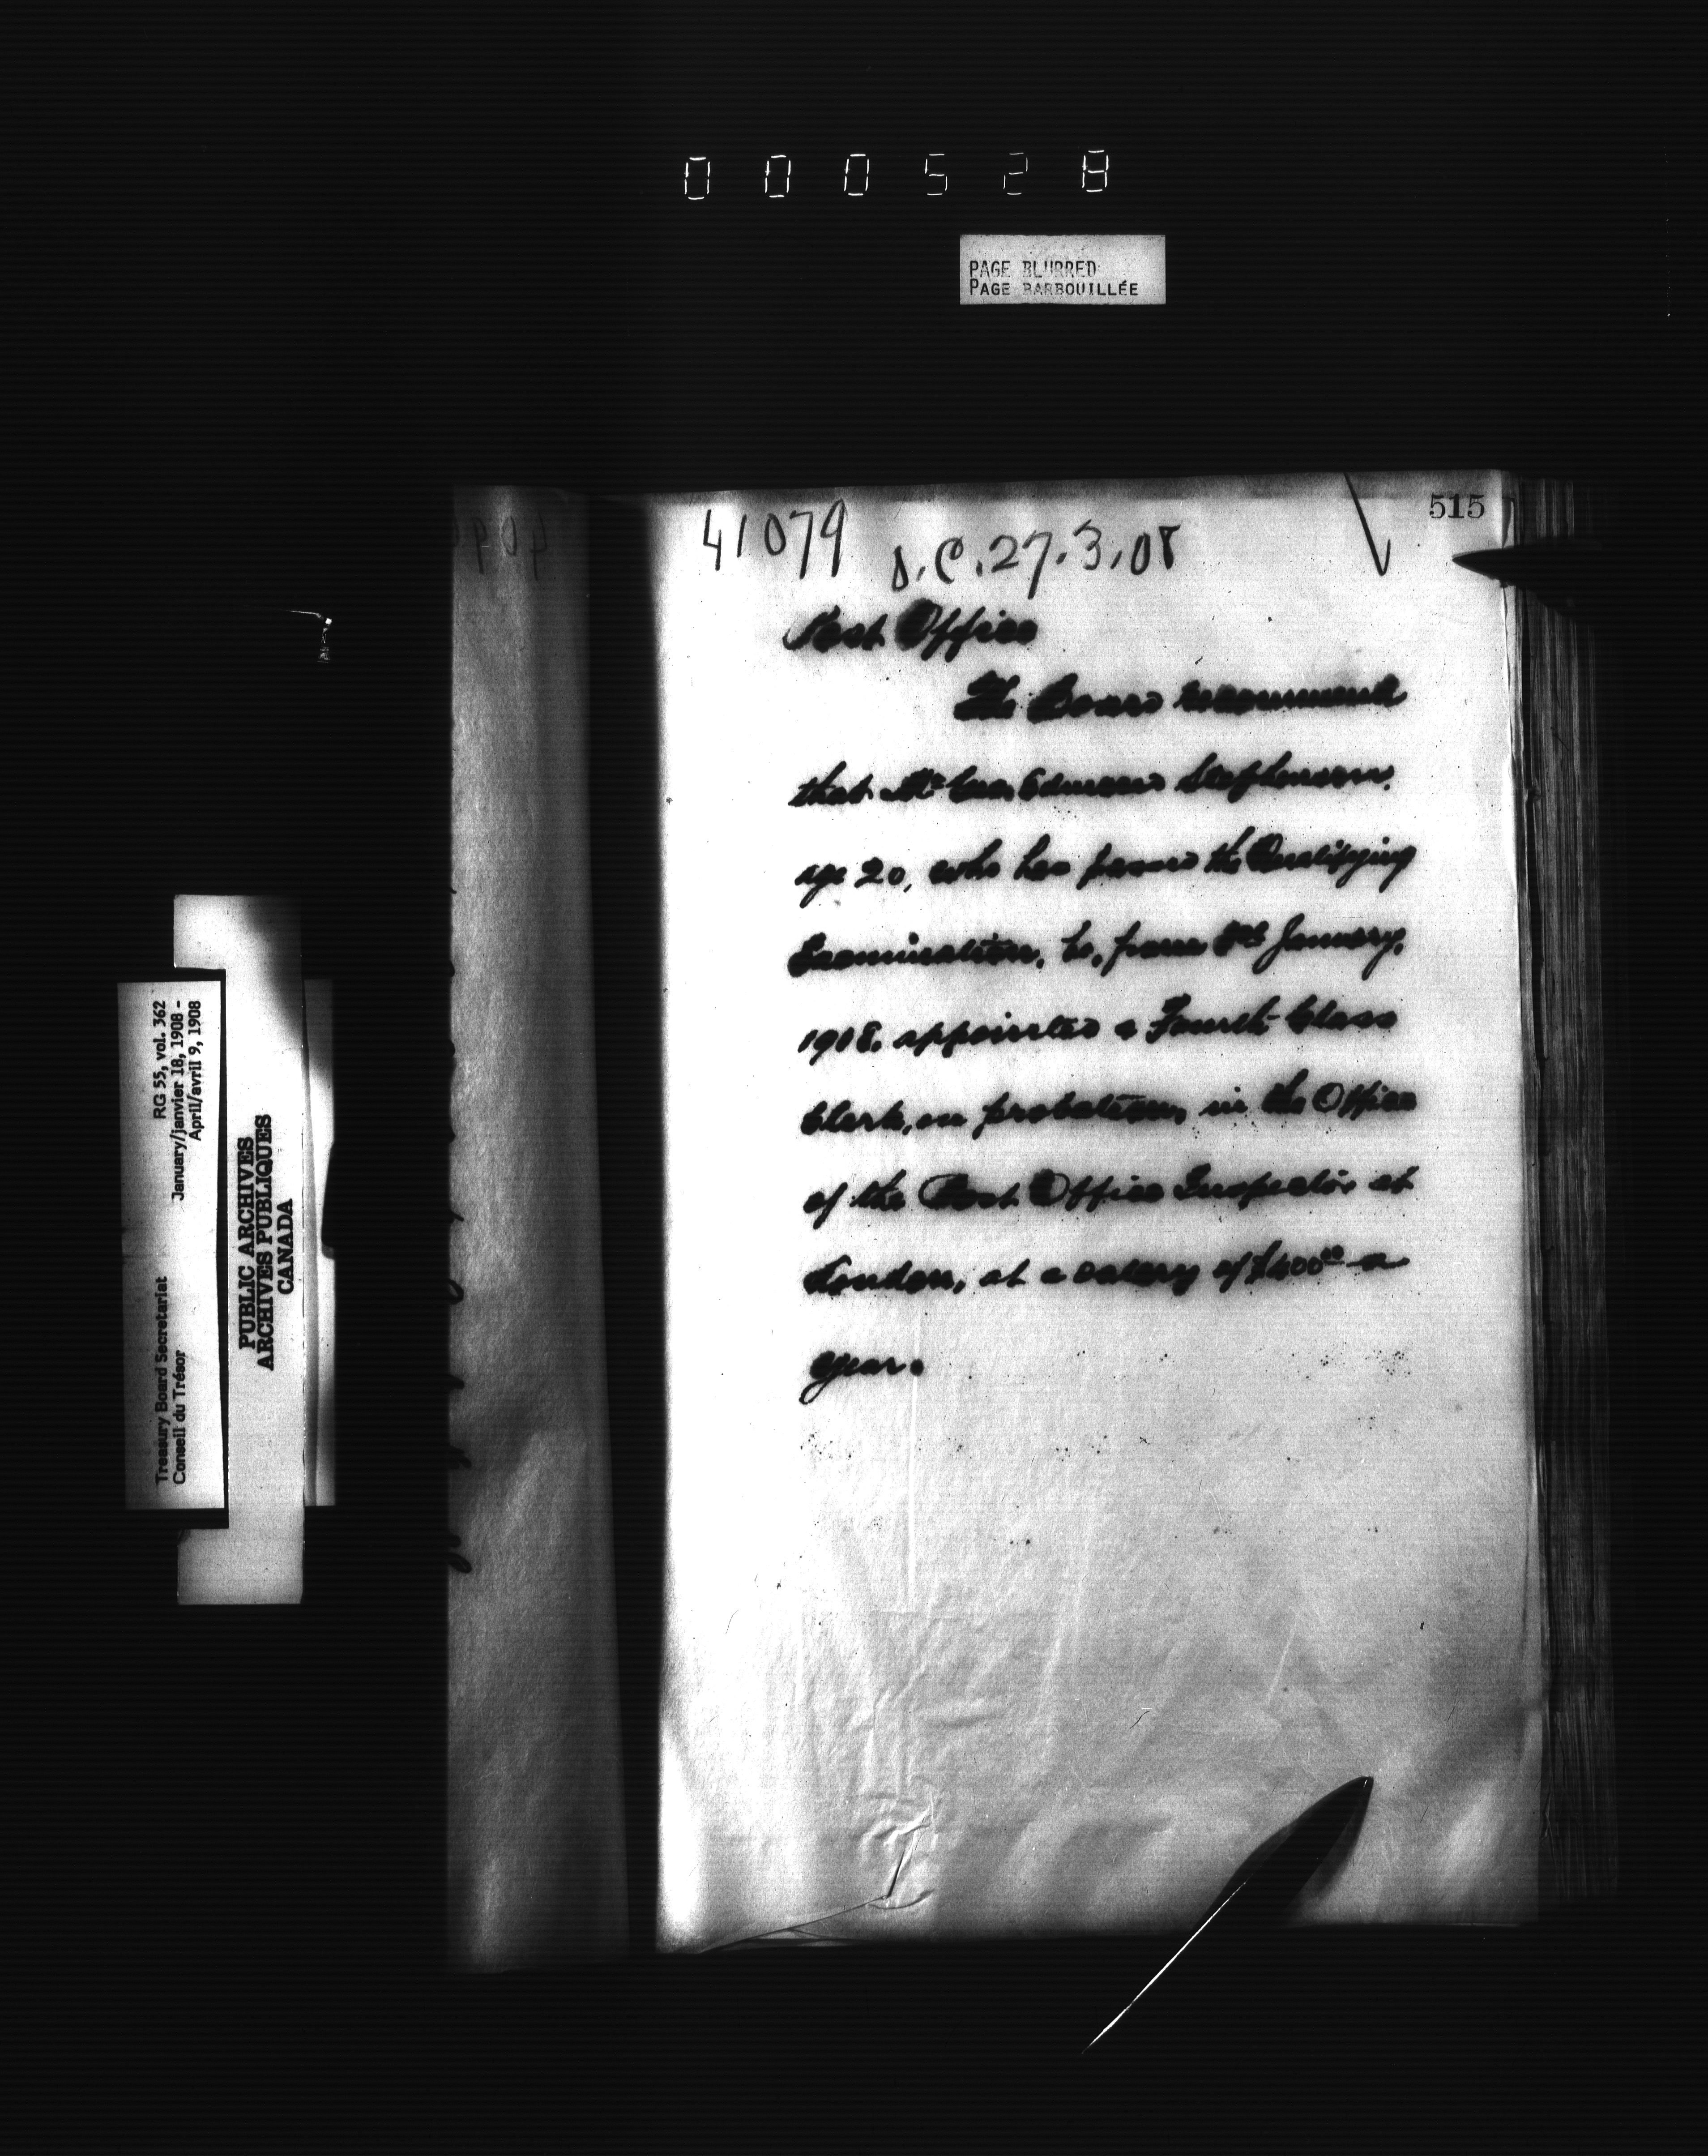 000528
PAGE BLURRED
PAGE BARBOUILLÉE
515
41079 O.C. 27.3.08
Post Office
The Board recommend
that Mr Geo. Edward Stephenson,
age 20, who has passed the Qualifying
Examination, be, from January,
1908, appointed a Fourth Class
Clerk, on probation, in the Office
of the Post Office Inspector at
London, at a salary of $400⁰⁰ a
year.
Treasury Board Secretariat RG 55, vol. 362
Conseil du Trésor January/janvier 18, 1908 -
April/avril 9, 1908
PUBLIC ARCHIVES
ARCHIVES PUBLIQUES
CANADA